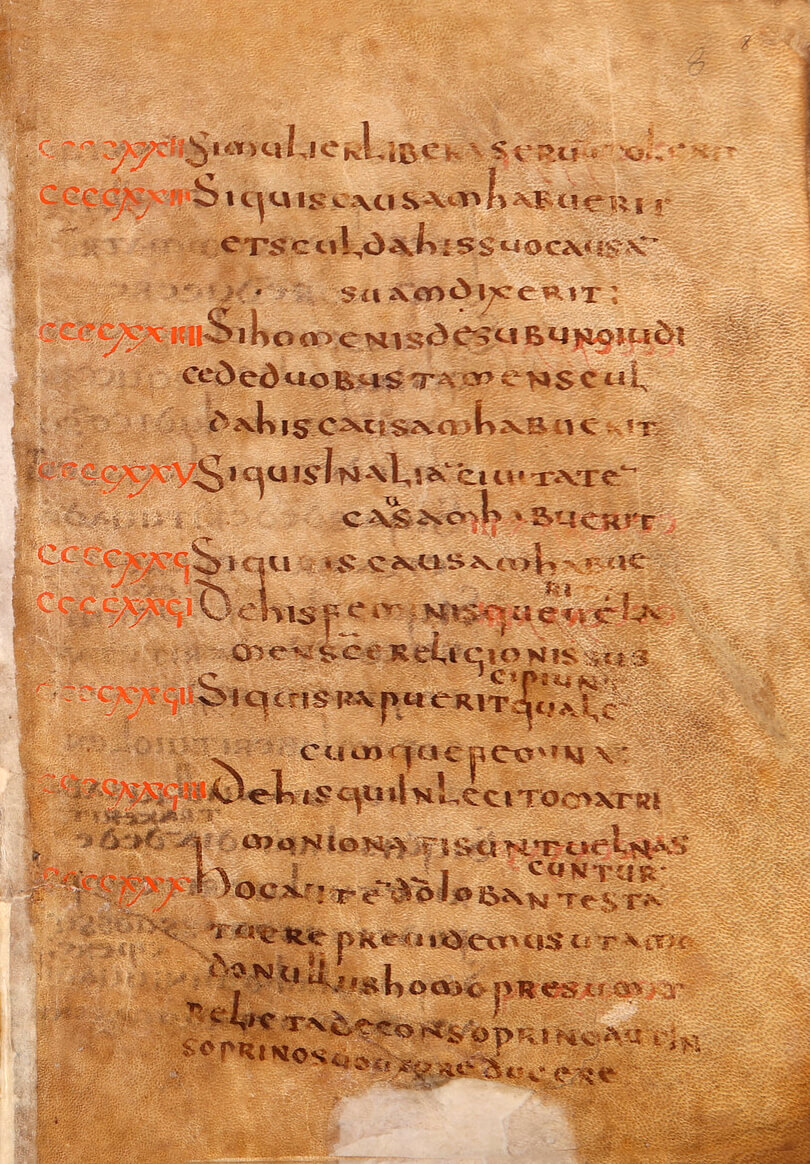 8 8
CCCCXXII Simulier libera seru
CCCCXXIII Siquis causam habuerit
et sculdahis suo causā
suam dixerit:
CCCCXXIIII Si homenis de sub uno iudi
ce de duobus tamen scul
dahis causam habuerit
CCCCXXV Siquis In alia ciuitate
casam habuerit
CCCCXXϛ Siquis causam habue
rit
CCCCXXϛI De his feminis que uela
men sc̄e religionis sus
cipiunt
CCCCXXϛII Siquis rapuerit quale
cumque femina:
CCCCXXϛIII De his qui Inlecito matri
monio nati sunt uel nas
cuntur:
CCCCXXX hoc autē
tuere preuidemus ut amo
do nullus homo presumat
relicta de consoprino aut In
soprinosuo uxore ducere